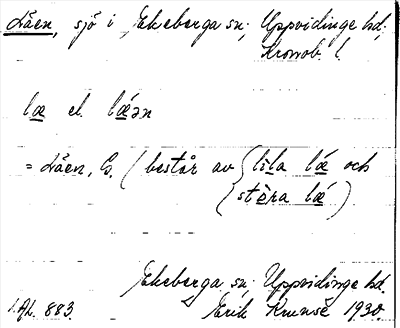 Låen, sjö i Ekeberga sn; Uppvidinge hd;
Kronob. l.
læ el. lǽən
= Låen, G. (består av {lila lǽ och
{stèra lǽ)
Ekeberga sn; Uppvidinge hd.
883. Erik Kruuse 1930.